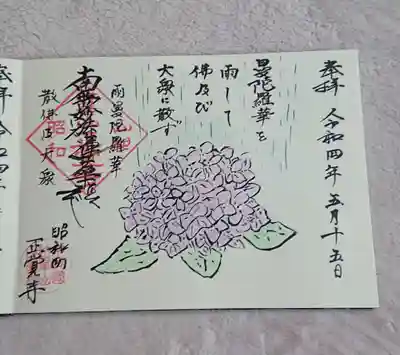 奉拝 令和四年五月十五日
曼陀羅華を
雨して
佛及び
大衆に散ず
雨曼陀羅華
散佛及大衆
南無妙法蓮華経
昭和町
正覚寺
奉拝 令和四